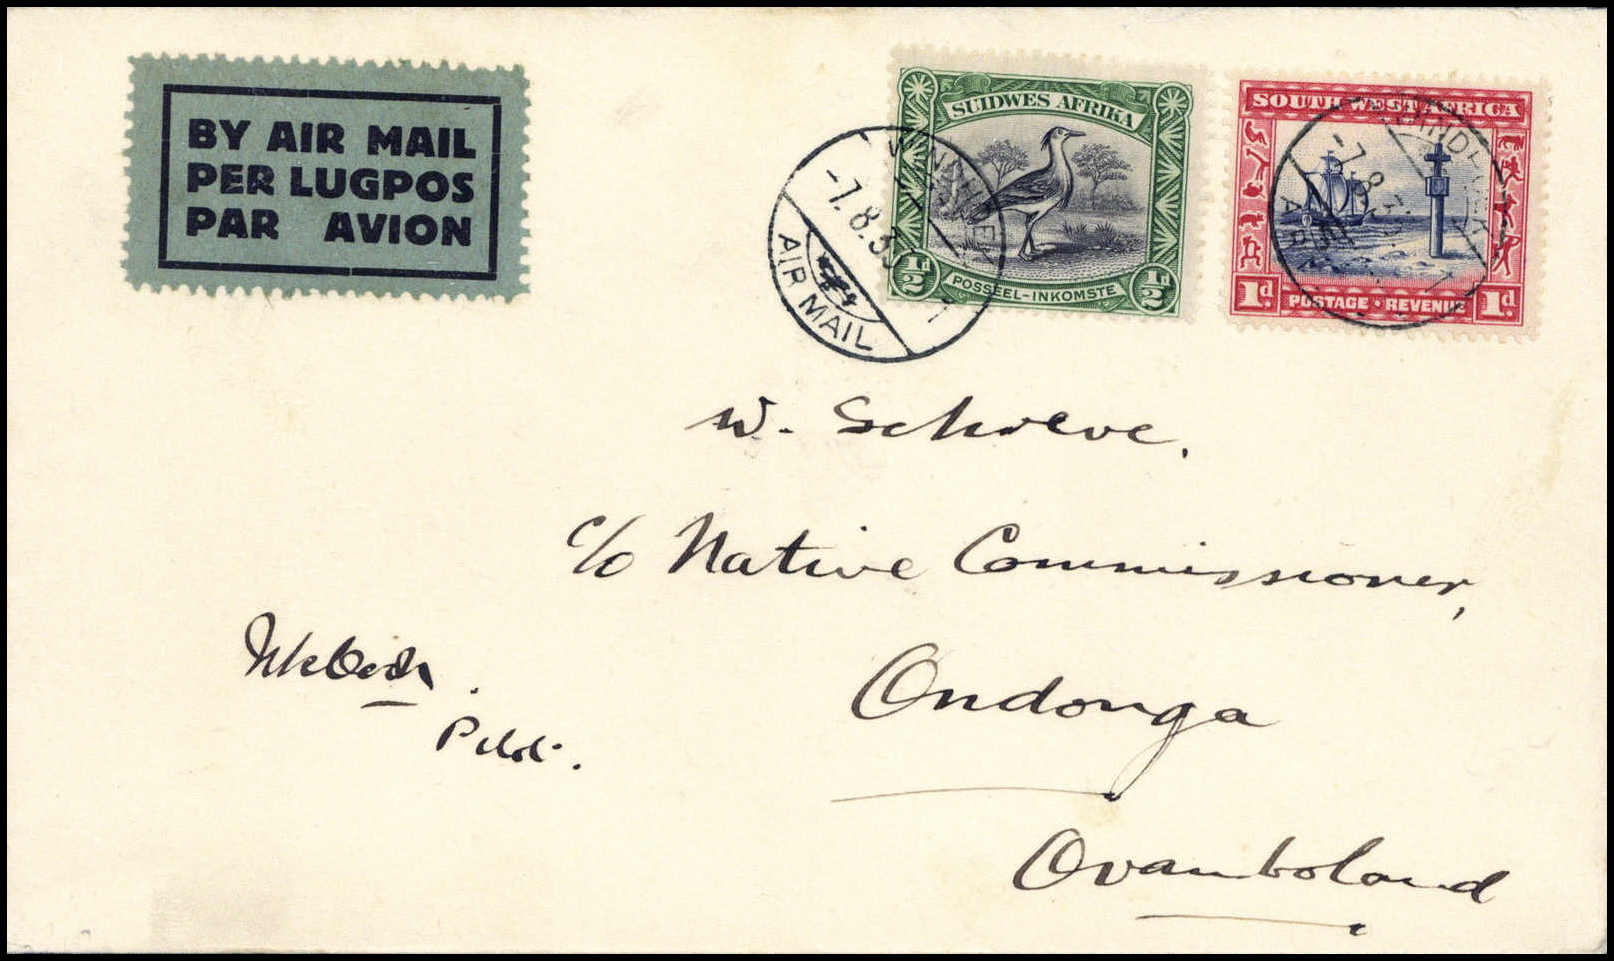 BY AIR MAIL
PER LUGPOS
PAR AVION
SUIDWES AFRIKA
½d ½d
POSSEËL-INKOMSTE
SOUTH WEST AFRICA
1d. POSTAGE · REVENUE 1d.
WINDHOEK
-7.8.3
AIR MAIL
WINDHOEK
-7.8.3
AIR
W. Schoeve.
c/o Native Commissioner,
Ondonga
Ovamboland
Pilot.